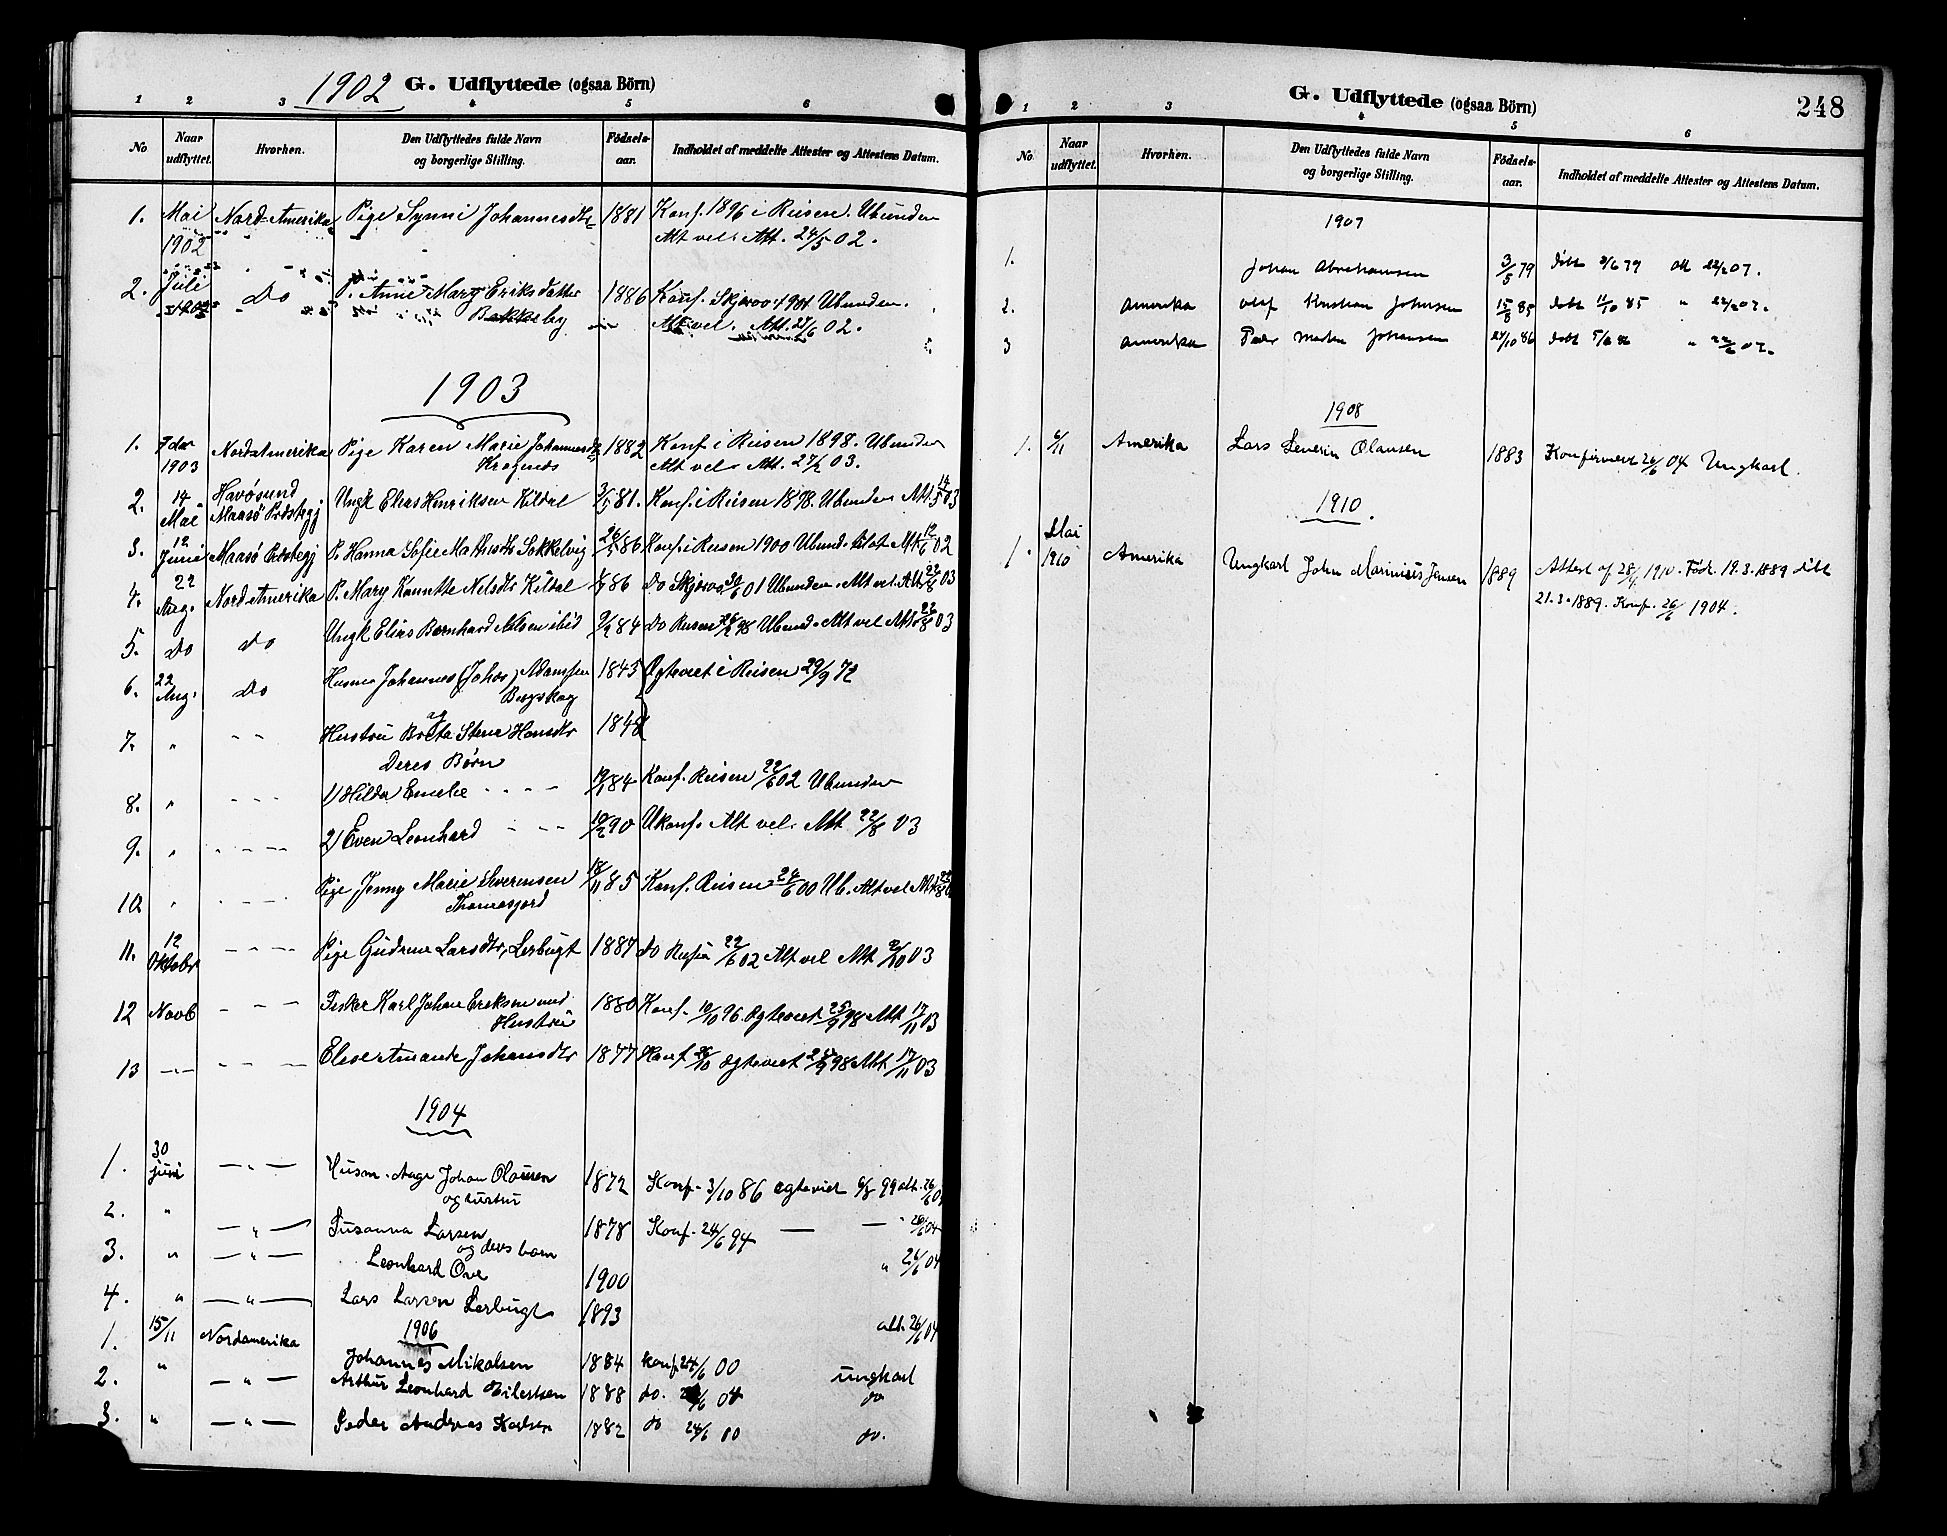 1902 G. Udflyttede (ogsaa Börn)
1 2 3 4 5 6
No Naar udflyttet. Hvorhen. Den Udflyttedes fulde Navn og borgerlige Stilling. Födsels-aar. Indholdet af meddelte Attester og Attestens Datum.
1. Mai 1902 Nord-Amerika Pige Synni Johannesdtr 1881 Konf. 1896 i Reisen. Ubunden
Alt vel. Att. 24/5 02.
2. Juli 1902 Do P. Anne Mary Eriksdatter 1886 Konf. Skjervø 1901 Ubunden.
Bakkeby Alt vel. Att. 27/6 02.
1903
1. 1903 Nordamerika Pige Karen Marie Johannesdtr 1882 Konf. i Reisen 1898. Ubunden
Alt vel. Att. 27/2 03.
2. 14 Mai Havøsund Maasø Prestegj Ungk Elias Henriksen Kildal 3/5 81. Konf. i Reisen 1898. Ubunden Att 14/5 03
3. 12 Juni Maasø Prstegj P. Hanna Sofie Mathisdtr Sokkelvig 26/5 86 Konf. i Reisen 1900 Ubund. Att 12/6 02
4. 22 Aug. Nord Amerika P. Mary Nelsdtr Kildal 86 do Skjervø 01 Ubunden. Alt vel Att 22/8 03
5. Do do Ungk Elias Bernhard Nilsen ibid 84 do Reisen 98 Ubund. Alt vel Att 22/8 03
6. 22 Aug. Do Husm Johannes (Johas) Adamsen 1843 Ægteviet i Reisen 29/9 72
7. " " Hustru Brita Stine Hansdtr 1848
Deres Børn
8. " 1) Hilda Emelie 84 Konf. Reisen 22/6 02 Ubunden
9. " 2) Even Leonhard 10/2 90 Ukonf. Alt vel. Att 22/8 03
10 " Pige Jenny Marie Sverensen 18/11 85 Konf. Reisen 24/6 00 Ub. Alt vel Att 22/8
11. 12 Oktobr Pige Gudrun Larsdtr, Lerbugt 1887 do Reisen 22/6 02 Alt vel Att 2/10 03
12 Novb Fisker Karl Johan Eriksen med 1880 Konf. 10/10 96. Ægteviet 25/9 98 Att 17/11 03
Hustru
13 Johansdtr 1877 Konf 26/10 Ægteviet 98 Att 17/11 03
1904
1. 30 juni — " — Husm. Aage Johan Olausen 1872 Konf. 3/10 86 ægteviet 99 att. 26/6 04
og hustru
2. " — " — Susanna Larsen 1878 Konf. 24/6 94 — — " 26/6 04
og deres barn
3. " — " — Leonhard Ove 1900 " 26/6 04
4. " — " — Lars Larsen Lerbugt 1893 att. 26/6 04
1906
1. 15/11 Nordamerika Johannes Mikalsen 1884 konf 24/6 00 ungkarl
2. " — " — Arthur Leonhard Eilertsen 1888 do. 04 do
3. " — " — Peder Andreas Karlsen 1882 do 24/6 00 do.
G. Udflyttede (ogsaa Börn) 248
1 2 3 4 5 6
No. Naar udflyttet. Hvorhen. Den Udflyttedes fulde Navn og borgerlige Stilling. Födsels-aar. Indholdet af meddelte Attester og Attestens Datum.
1907
1. Johan Abrahamsen 3/5 79 døbt 2/6 79 att 22/2 07.
2. Amerika Olaf Kristian Johnsen 15/8 85 døbt 11/10 85 " 22/2 07.
3 Amerika Peder Johansen 24/10 86 døbt " 22/6 07.
1908
1. 6/11 Amerika Lars Severin Olausen 1883 Konfirmert 26/6 04 Ungkarl.
1910.
1. Mai 1910 Amerika Ungkarl John Marinius Jensen 1889 Attest af 28/4 1910. Födt. 19.3.1889 döbt
21.3.1889. Konf. 26/6 1904.